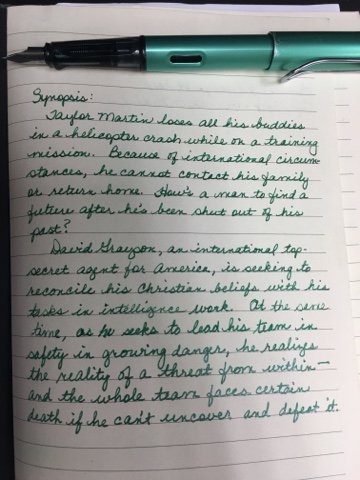 Synopsis:
Taylor Martin loses all his buddies
in a helicopter crash while on a training
mission. Because of international circum-
stances, he cannot contact his family
or return home. How's a man to find a
future after he's been shut out of his
past?
David Grayson, an international top-
secret agent for America, is seeking to
reconcile his Christian beliefs with his
tasks in intelligence work. At the same
time, as he seeks to lead his team in
safety in growing danger, he realizes
the reality of a threat from within—
and the whole team faces certain
death if he can't uncover and defeat it.